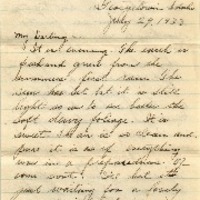 Georgetown, Idaho
July 29, 1933
My Darling
It is evening. The earth is
fresh and green from the
summer's first rain. The
sun has set but it is still
light so as to see better the
soft dewy foliage. It is
sweet the air is so clean and
pure it is as if everything
was in a preparedness. Of
some sort? Yes but it is
just waiting for a lovely